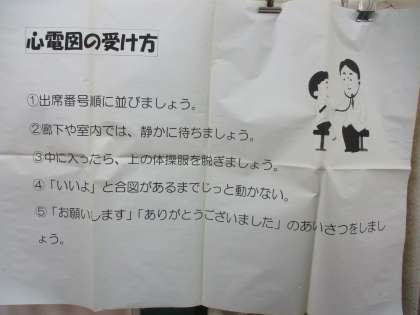 心電図の受け方
①出席番号順に並びましょう。
②廊下や室内では、静かに待ちましょう。
③中に入ったら、上の体操服を脱ぎましょう。
④「いいよ」と合図があるまでじっと動かない。
⑤「お願いします」「ありがとうございました」のあいさつをしまし
ょう。